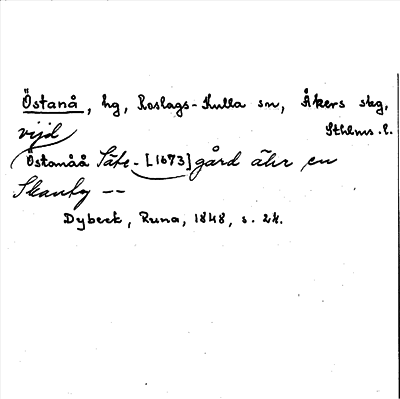 Östanå, hg, Roslags-Kulla sn, Åkers skg,
Sthlms l.
vijd
Östanåå Säte-[1673]gård ähr en
Skantz --
Dybeck, Runa, 1848, s. 24.